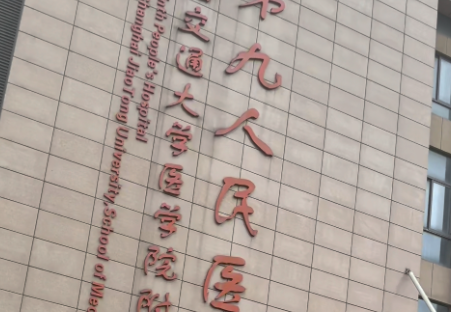 第九人民医
交通大学医学院附
Ninth People's Hospital
Shanghai JiaoTong University, School of Med